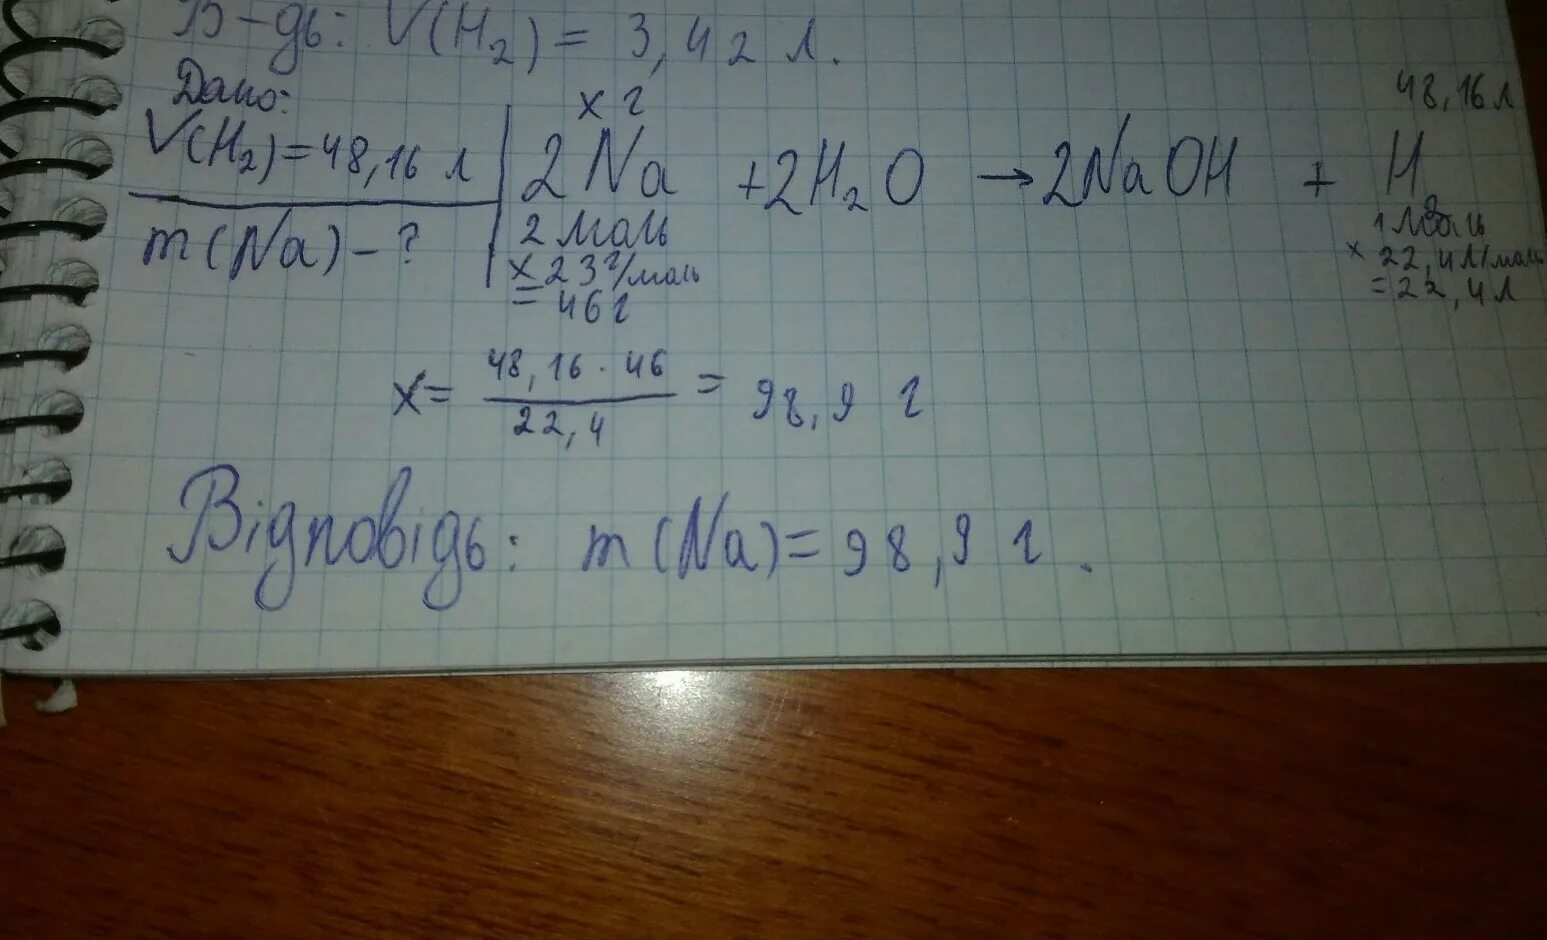 В-дь: V(H₂) = 3,42 л.
Дано:
V(H₂) = 48,16 л
m(Na) - ?
x г
48,16 л
2Na + 2H₂O → 2NaOH + H₂
2 моль
x 23 г/моль
= 46 г
1 моль
x 22,4 л/моль
= 22,4 л
x = 48,16 · 46 / 22,4 = 98,9 г
Відповідь: m(Na) = 98,9 г.